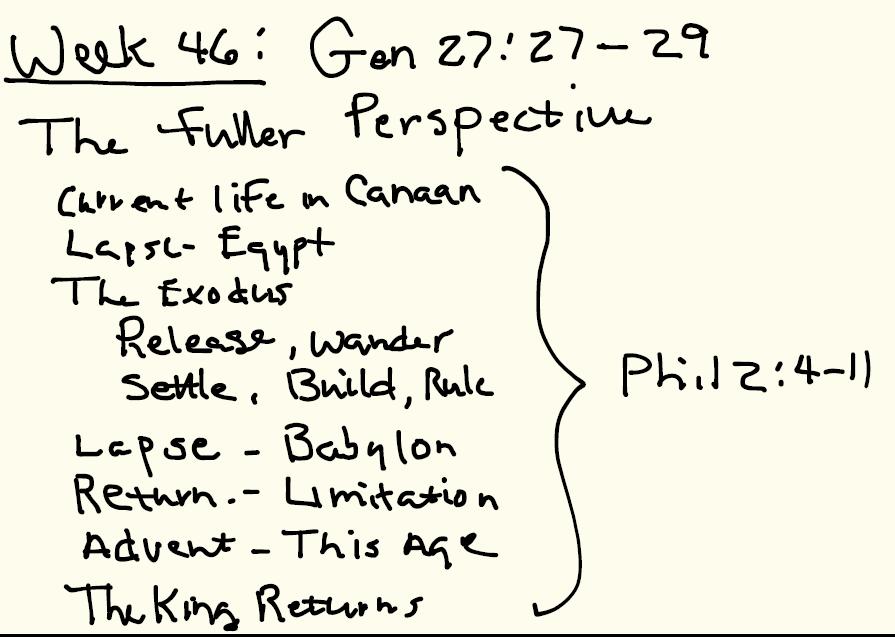 Week 46: Gen 27:27-29
The Fuller Perspective
Current life in Canaan
Lapse- Egypt
The Exodus
Release, Wander
Settle, Build, Rule
Lapse - Babylon
Return.- Limitation
Advent - This Age
The King Returns
Phil 2:4-11